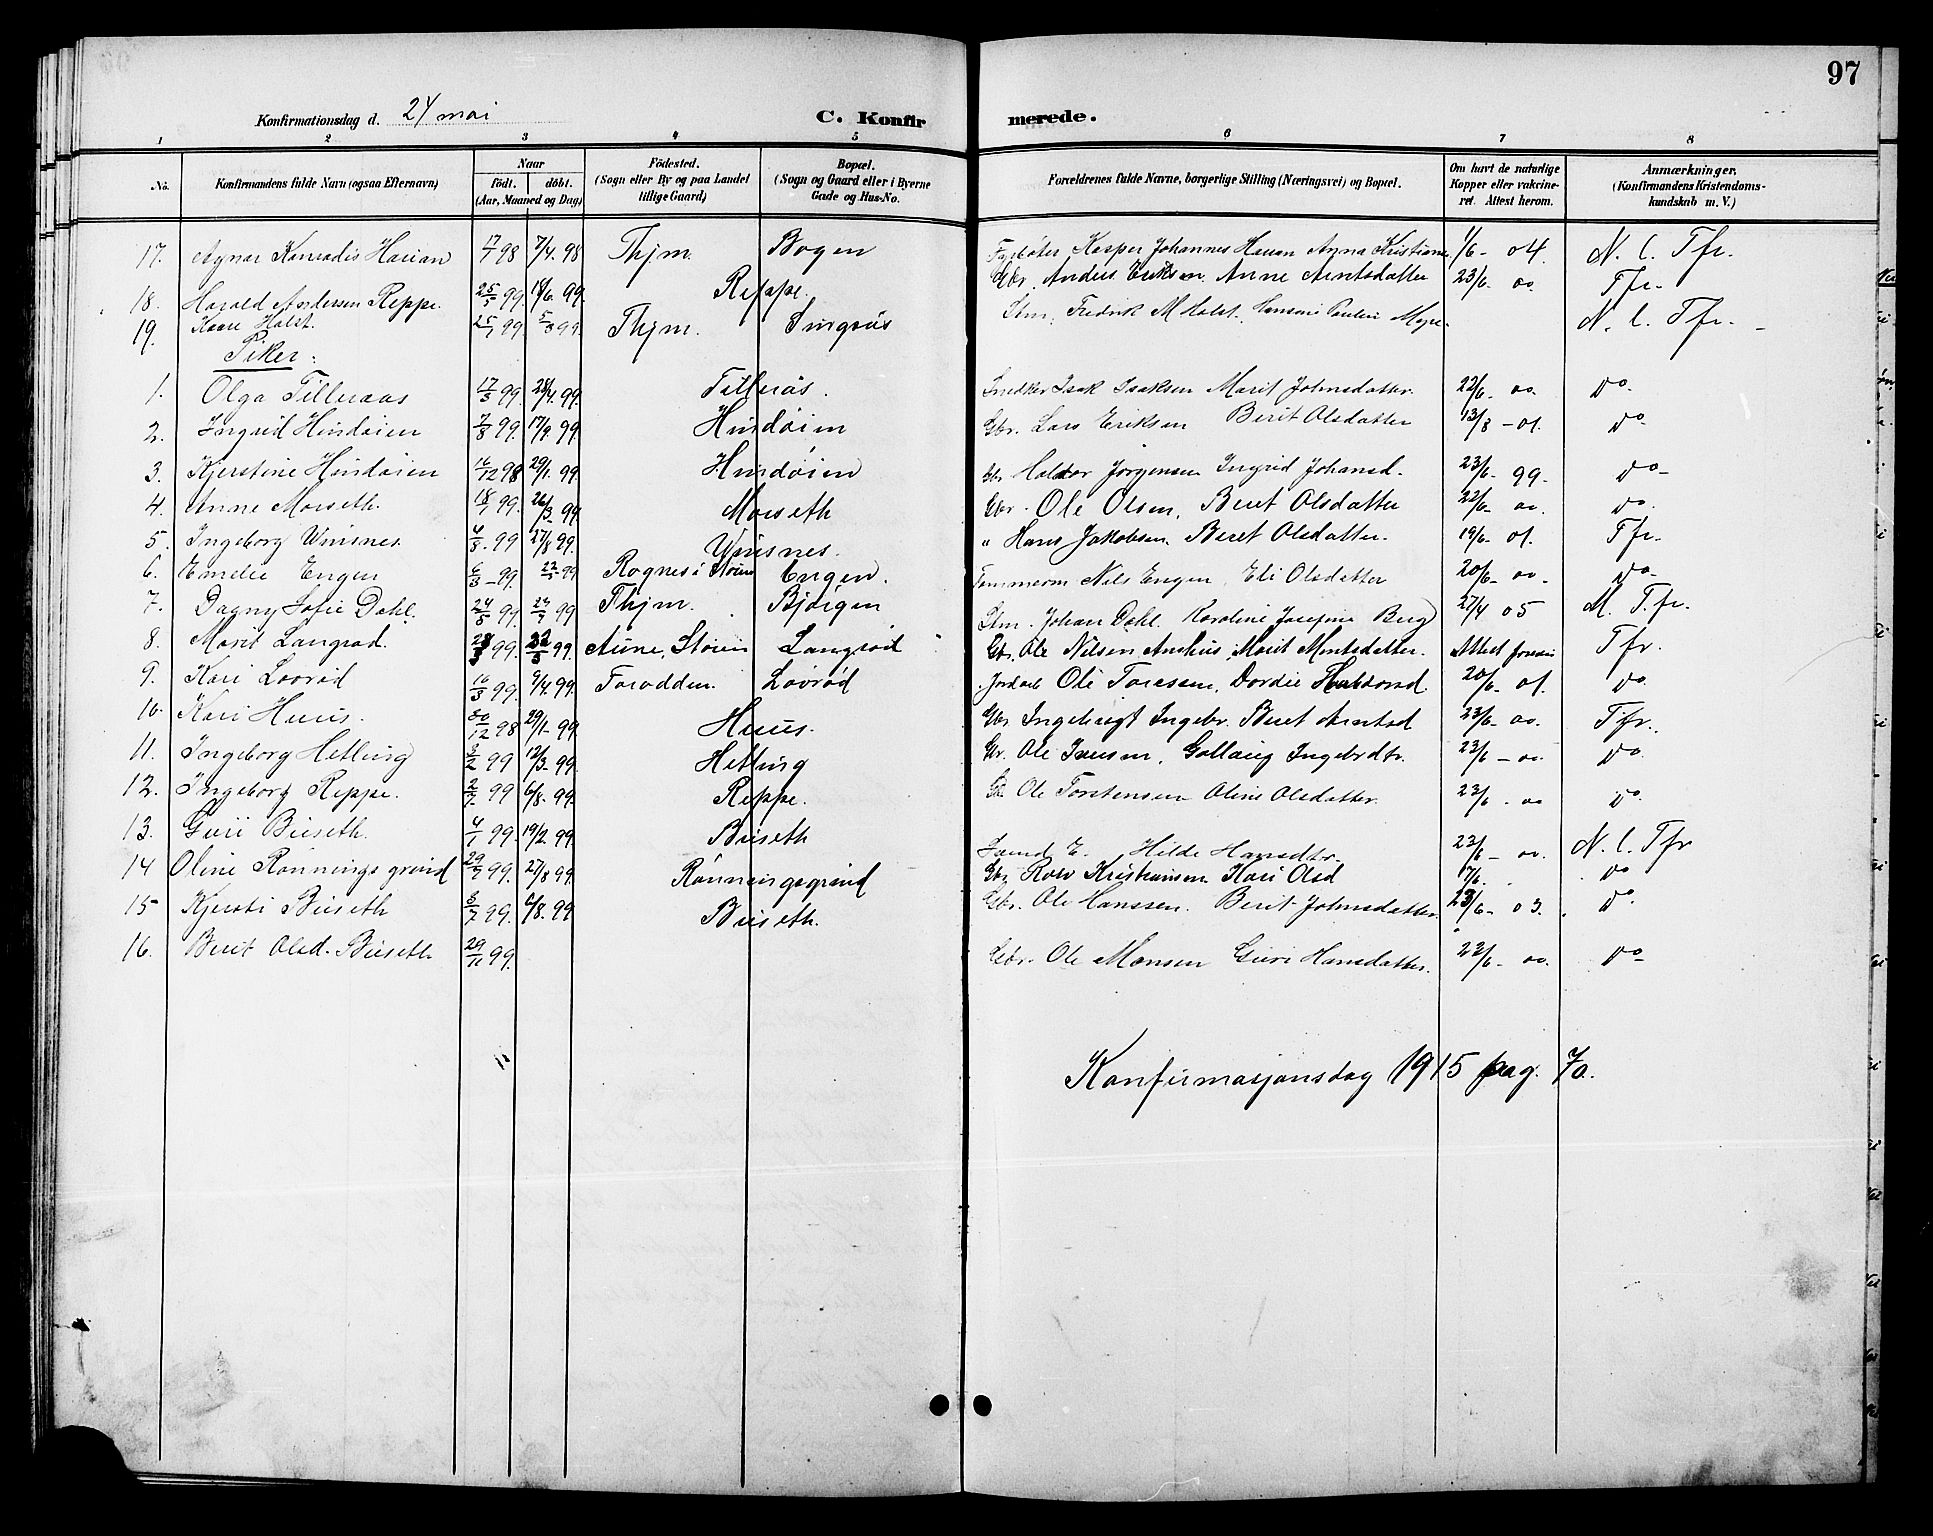 97
Konfirmationsdag d. 24 mai C. Konfirmerede.
1 2 3 4 5 6 7 8
No. Konfirmandens fulde Navn (ogsaa Efternavn) Naar födt. döbt. (Aar, Maaned og Dag) Födested. (Sogn eller By og paa Landet tillige Gaard) Bopæl. (Sogn og Gaard eller i Byerne Gade og Hus-No. Forældrenes fulde Navne, borgerlige Stilling (Næringsvei) og Bopæl. Om havt de naturlige Kopper eller vakcineret. Attest herom. Anmærkninger, (Konfirmandens Kristendomskundskab m. V.)
17. Agnar Konradis Hauan 17/1 98 7/4. 98 Thjm. Bogen Kasper Johannes Hauan Anna Kristiane 1/6 - 04. N. l. Tfr.
18. Harald Andersen Reppe. 25/5 99. 18/6. 99. Reppe. Gbr. Anders Eriksen Anne Arntsdatter 23/6 - 00. Tfr.
19. Kaare Holst. 25/7 99. 5/3 99. Thjm. Singsås Stm. Fredrik M Holst, Hansine Pauline Myre. N. l. Tfr. -
Piker.
1. Olga Tilleraas 17/3 99. 23/4. 99. Tillerås. Snedker Isak Isaksen Marit Johnsdatter. 22/6 - 00. Do.
2. Ingrid Hindöien 7/8 99. 17/9. 99. Hindöien Gbr. Lars Eriksen Berit Olsdatter 13/8 - 01. Do.
3. Kjerstine Hindöien 16/12 98 29/1. 99. Hindöien Gbr Haldor Jörgensen Ingrid Johansd. 23/6 - 99. Do -
4. Anne Morseth. 18/1 99. 26/3. 99. Morseth Gbr. Ole Olsen, Beret Olsdatter 22/6 - 00. Do.
5. Ingeborg Winsnes. 4/8. 99 27/8 99. Winsnes. " Hans Jakobsen. Beret Olsdatter. 19/6 - 01. Tfr.
6. Emelie Engen 6/3 - 99. 22/5 99 Rognes i Støren Engen. Tömmerm Nils Engen, Eli Olsdatter 20/6 - 00. Do -
7. Dagny Sofie Dahl. 24/5 99. 23/7 99 Thjm. Bjørgen Stm. Johan Dahl. Karoline Josefine Berg 27/4 05 M. T.fr.
8. Marit Langrød. 28/3 99. 22/5 99. Aune, Støren Langrød Gbr. Ole Nilsen Aashus, Marit Mentsdatter. Attest Tfr.
9. Kari Lovröd 16/3 99. 9/4. 99. Foradden. Lovröd Jordarb Ole Toressen, Dordie Haldorsd. 20/6 - 01. Do.
10. Kari Huus. 30/12 98 29/1 - 99. Huus. Gbr Ingebrigt Ingebr. Beret Arntsd 23/6 - 00. Tfr.
11. Ingeborg Hetling 3/2 99 12/3 - 99. Hetling Gbr. Ole Iversen, Gollaug Ingebrdtr. 23/6 - 00. Do.
12. Ingeborg Reppe. 2/7. 99 6/8. 99. Reppe. Gb. Ole Torstensen Oline Olsdatter. 23/6 - 00 Do.
13. Guri Buseth. 4/1 99. 19/2 99. Buseth E. Hilde Hansdtr. 23/6 - 00. N. l. Tfr
14 Oline Rönningsgrind 29/7 99. 27/8 99. Rönningsgrind Gbr Rolv Kristiansen Kari Olsd 17/6. Do
15 Kjersti Buseth 3/7 99. 6/8. 99 Buseth. Gbr. Ole Hanssen. Berit Johnsdatter. 23/6 - 03. Do.
16. Berit Olsd. Buseth 29/11 99. Gbr. Ole Monsen Guri Hansdatter. 23/6 - 00. Do
Konfirmasjonsdag 1915 pag. 70.